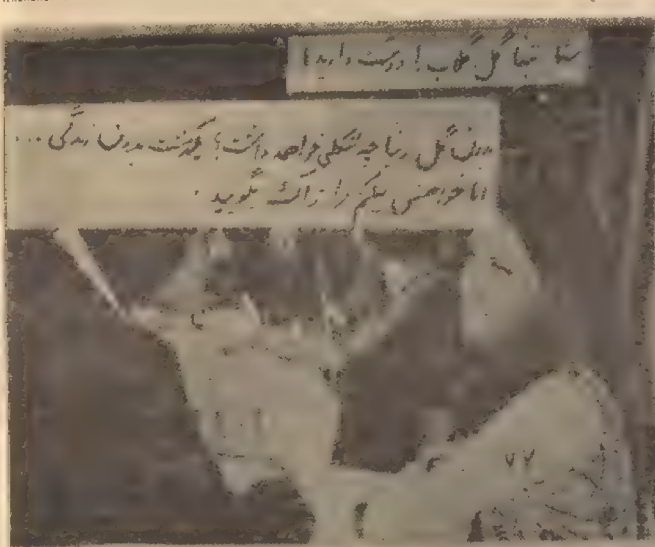 شما تنها گل گلاب را دوست دارید؟
بدون گل دنیا چه شکلی خواهد داشت؟ بدون زندگی ...
اما خواهش میکنم را بگویید.
۷۷